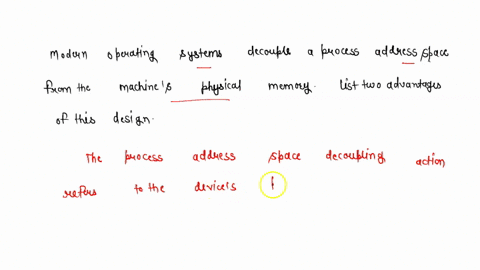 Modern operating systems decouple a process address space
from the machine's physical memory. list two advantages
of this design.
The process address space decoupling action
refers to the device's